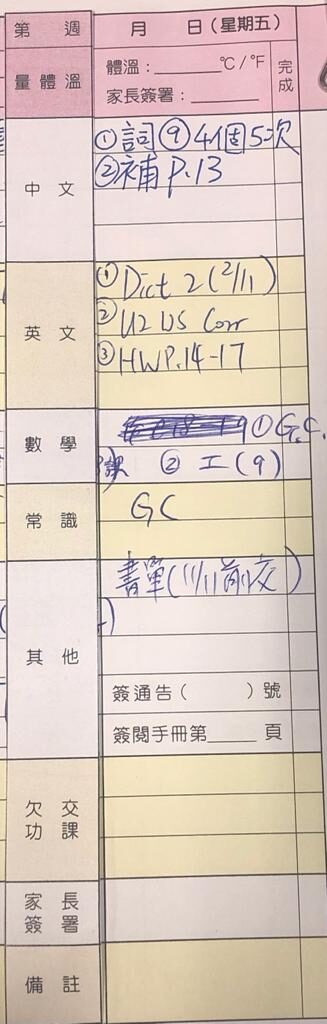 第 週 月 日(星期五)
量體溫 體溫:______°C/°F 完成
家長簽署:______
中文 ①詞⑨4個5次
②補P.13
英文 ①Dict 2(2/11)
②U2 WS Corr
③HWP.14-17
數學 ①G.C.
課 ②工(9)
常識 GC
其他 書單(11/11前交)
簽通告( )號
簽閱手冊第____頁
欠交功課
家長簽署
備註